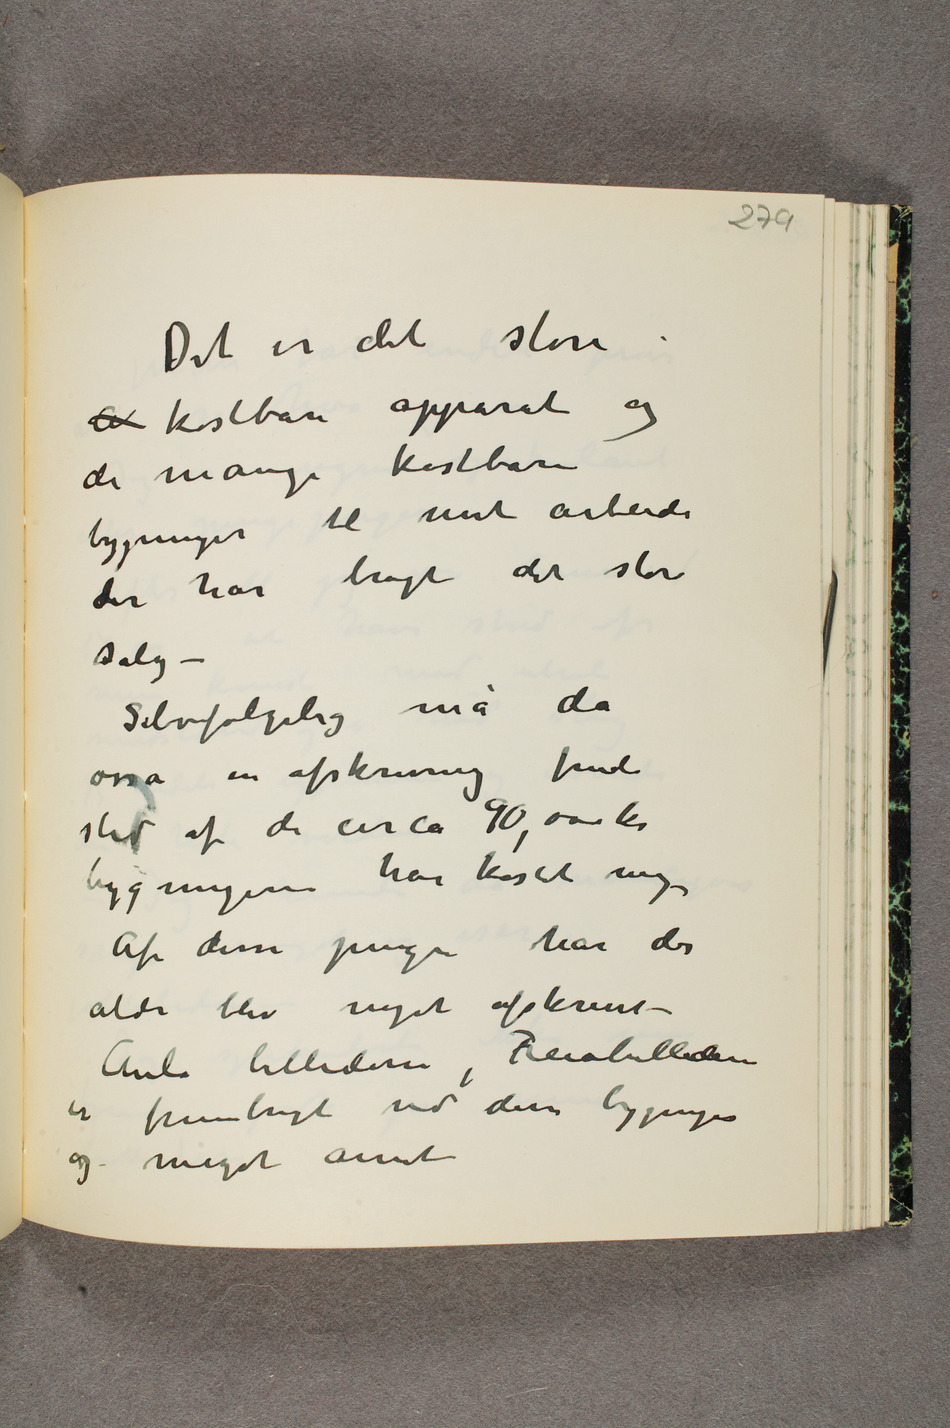 279
Det er det store
kostbare apparat og
de mange kostbare
bygninger til mit arbeide
der har bragt det store
salg –
Selvfølgelig må da
osså en afskrivning finde
sted af de circa 90,000 kr
bygningene har kostet mig
Af disse penge har der
aldri blev noget afskrevet –
Aula billederne, Freiabillederne
er frembragt ved disse bygninger
og meget annet